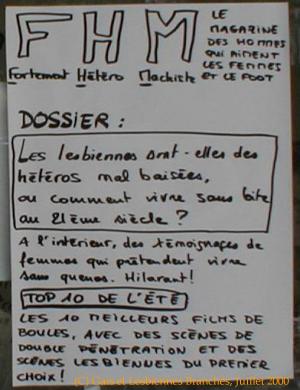 FHM
Fortement Hétéro Machiste
LE
MAGAZINE
DES HOMMES
QUI AIMENT
LES FEMMES
ET LE FOOT
DOSSIER :
Les lesbiennes sont-elles des
hétéros mal baisées,
ou comment vivre sans bite
au 21ème siècle ?
A l'intérieur, des témoignages de
femmes qui prétendent vivre
sans queues. Hilarant!
TOP 10 DE L'ÉTÉ
LES 10 MEILLEURS FILMS DE
BOULES, AVEC DES SCÈNES DE
DOUBLE PÉNÉTRATION ET DES
SCÈNES LESBIENNES DU PREMIER
CHOIX !
(C) Gais et Lesbiennes Branchés, Juillet 2000